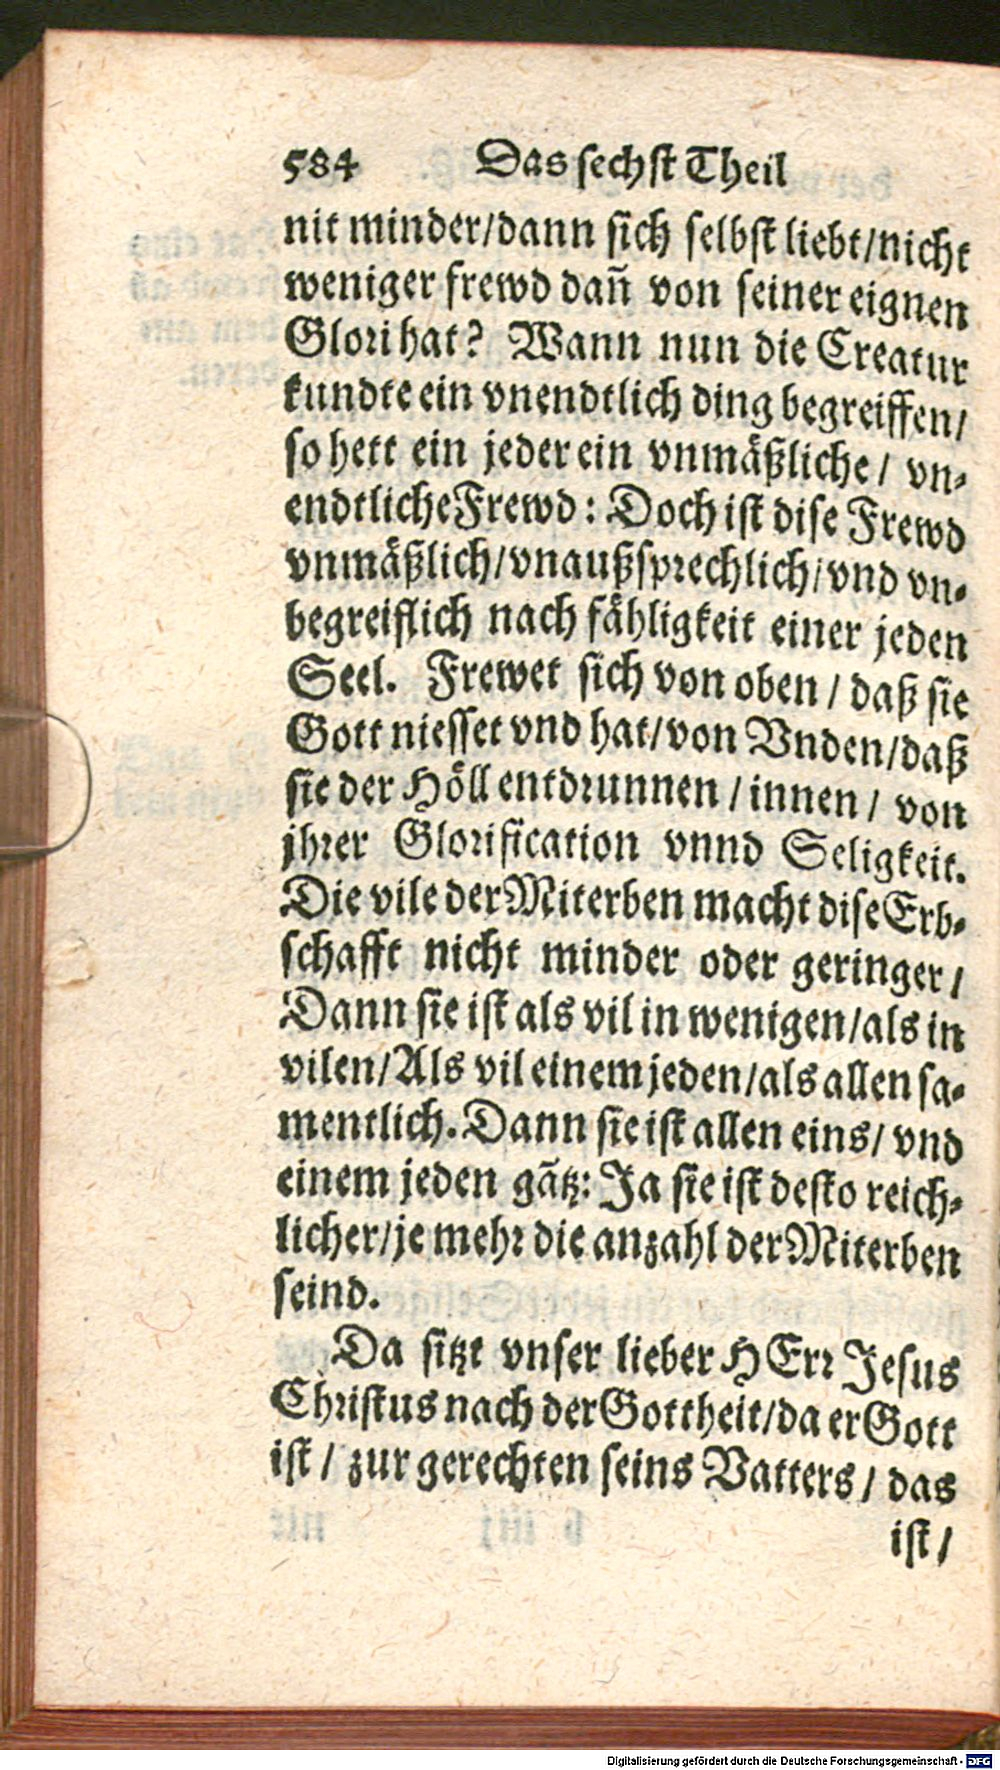 584 Das sechst Theil
nit minder/dann sich selbst liebt/nicht
weniger frewd dañ von seiner eignen
Glori hat? Wann nun die Creatur
kundte ein vnendtlich ding begreiffen/
so hett ein jeder ein vnmäßliche/ vn-
endtliche Frewd: Doch ist dise Frewd
vnmäßlich/vnaußsprechlich/vnd vn-
begreiflich nach fähligkeit einer jeden
Seel. Frewet sich von oben/ daß sie
Gott niesset vnd hat/von Vnden/daß
sie der Höll entdrunnen/innen/ von
jhrer Glorification vnnd Seligkeit.
Die vile der Miterben macht dise Erb-
schafft nicht minder oder geringer/
Dann sie ist als vil in wenigen/als in
vilen/Als vil einem jeden/als allen sa-
mentlich. Dann sie ist allen eins/ vnd
einem jeden gãtz: Ja sie ist desto reich-
licher/je mehr die anzahl der Miterben
seind.
Da sitzt vnser lieber HErr Jesus
Christus nach der Gottheit/da er Gott
ist/ zur gerechten seins Vatters/ das
ist/
Digitalisierung gefördert durch die Deutsche Forschungsgemeinschaft - DFG